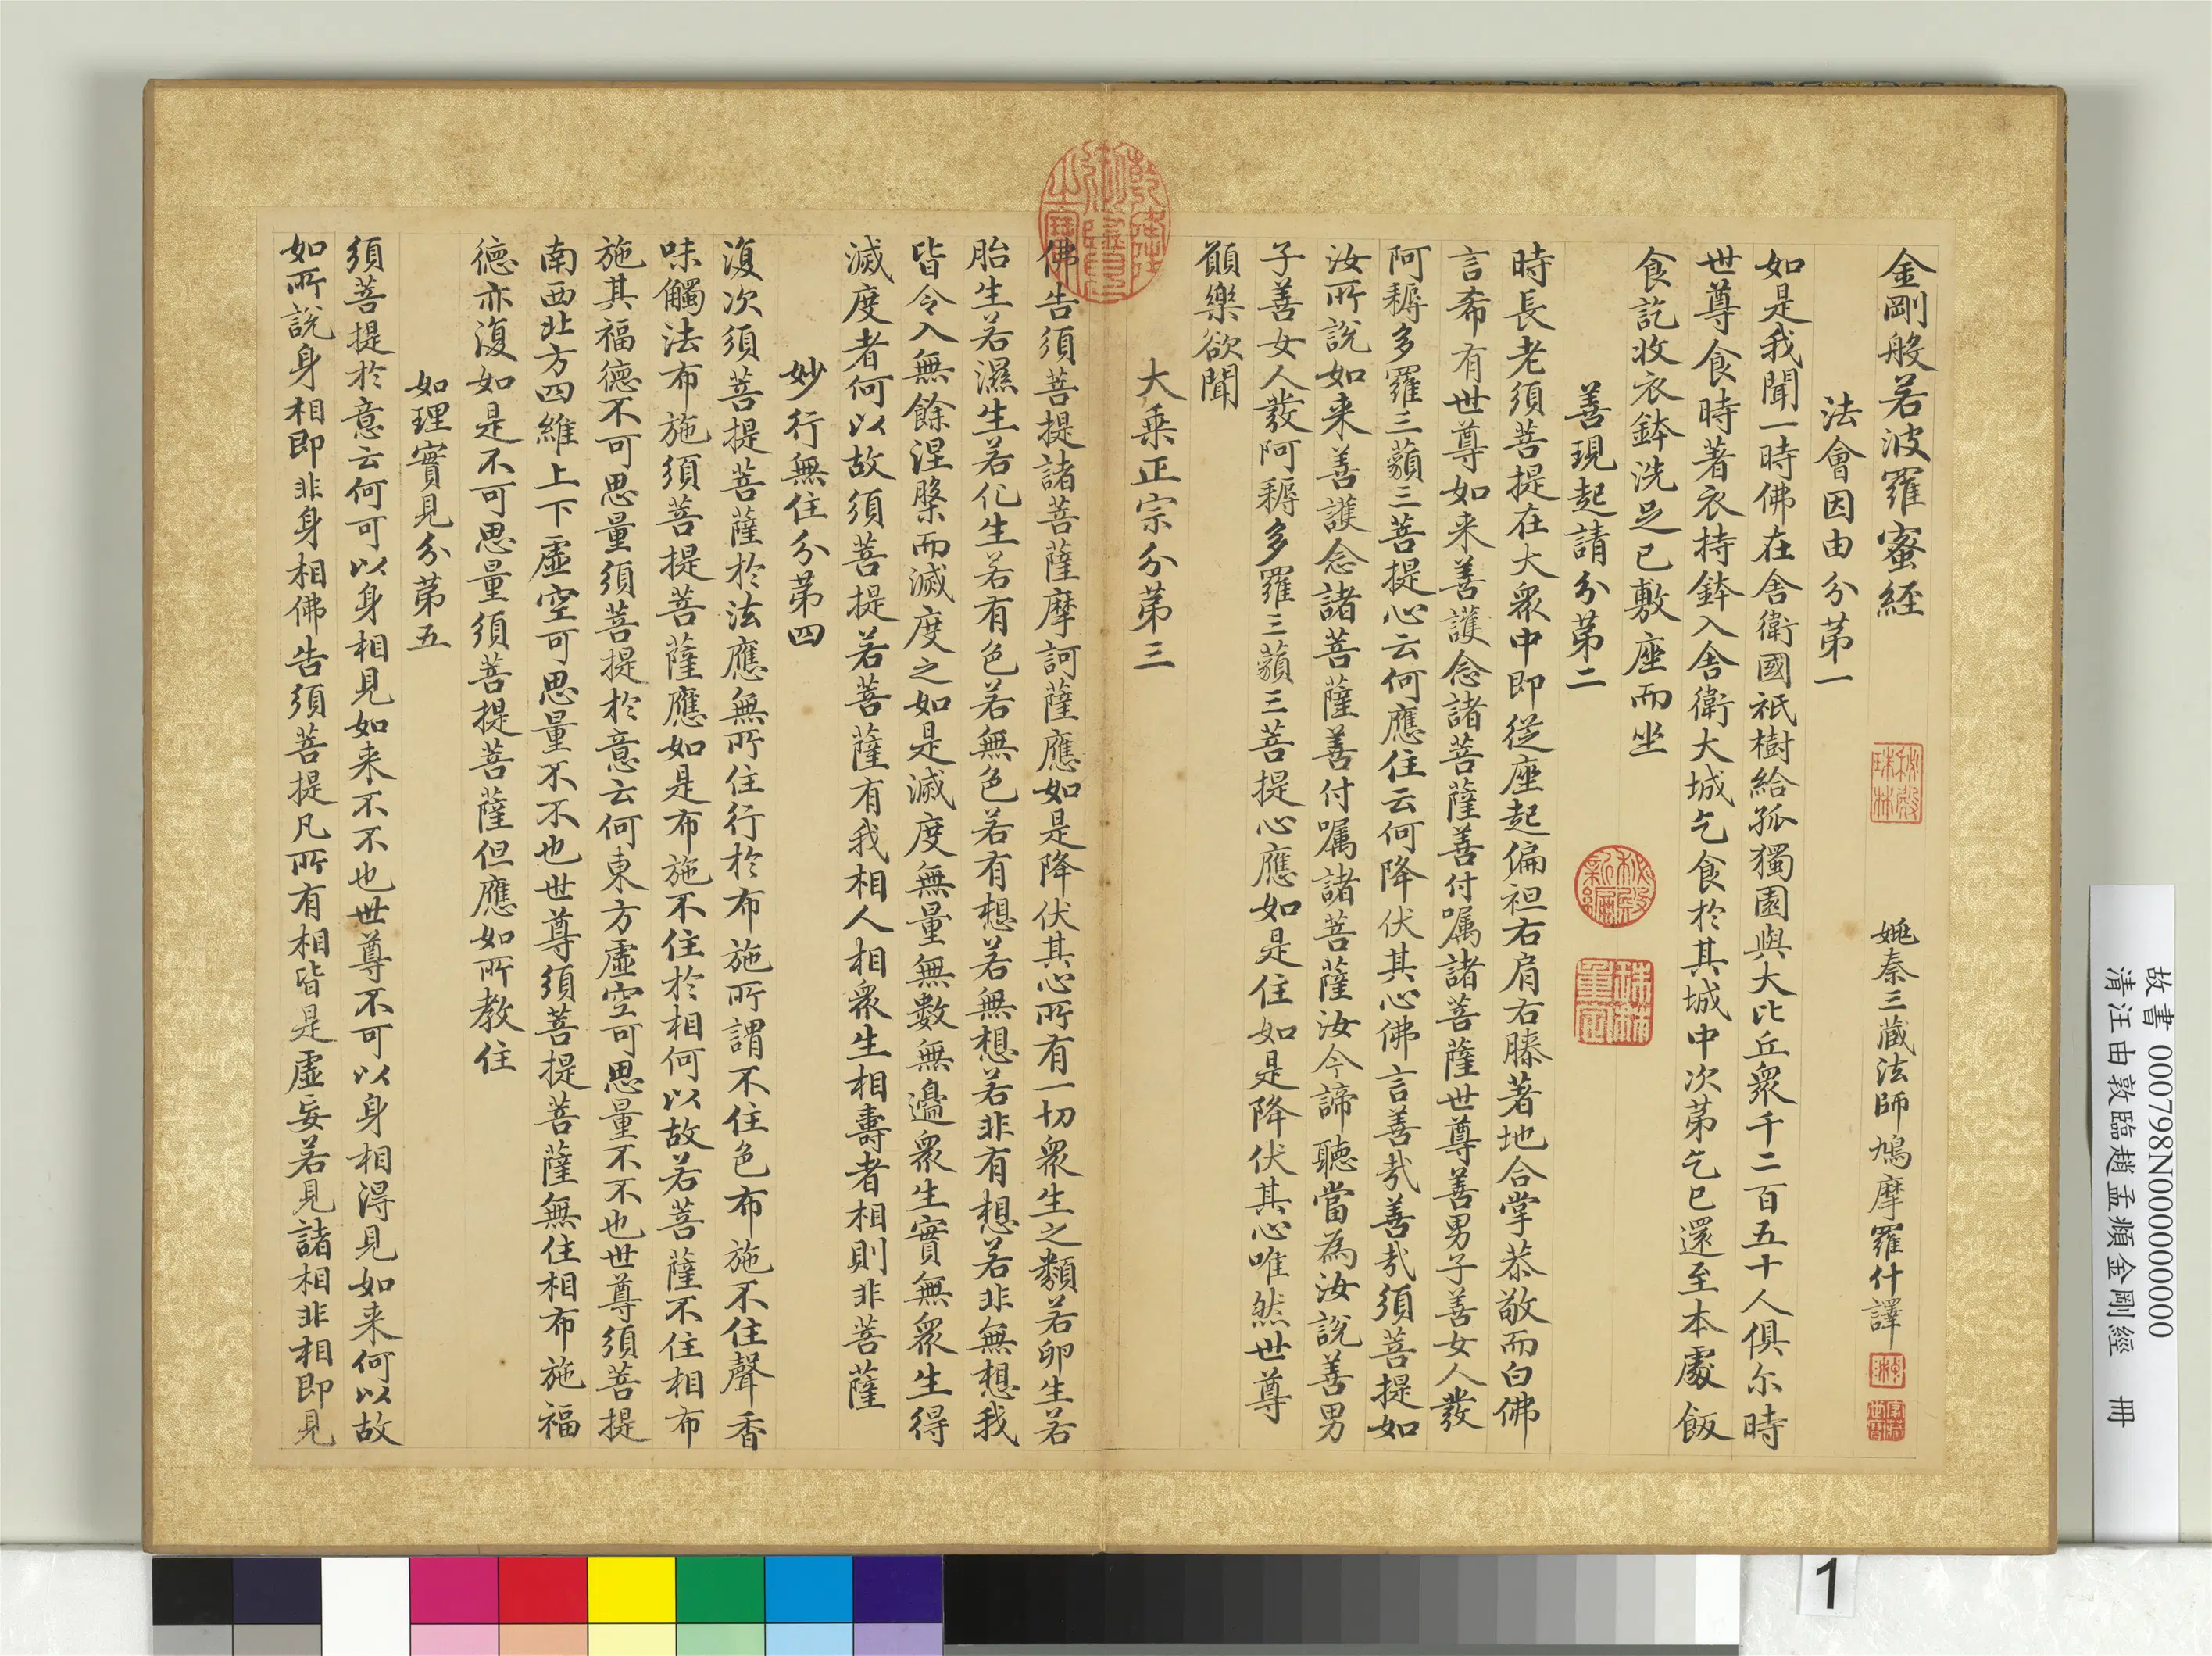 金剛般若波羅蜜經
姚秦三藏法師鳩摩羅什譯
法會因由分第一
如是我聞一時佛在舍衛國祇樹給孤獨園與大比丘衆千二百五十人俱尒時
世尊食時著衣持鉢入舍衛大城乞食於其城中次第乞已還至本處飯
食訖收衣鉢洗足已敷座而坐
善現起請分第二
時長老須菩提在大衆中即從座起偏袒右肩右膝著地合掌恭敬而白佛
言希有世尊如来善護念諸菩薩善付囑諸菩薩世尊善男子善女人發
阿耨多羅三藐三菩提心云何應住云何降伏其心佛言善哉善哉須菩提如
汝所說如来善護念諸菩薩善付囑諸菩薩汝今諦聽當為汝說善男
子善女人發阿耨多羅三藐三菩提心應如是住如是降伏其心唯然世尊
願樂欲聞
大乘正宗分第三
佛告須菩提諸菩薩摩訶薩應如是降伏其心所有一切衆生之類若卵生若
胎生若濕生若化生若有色若無色若有想若無想若非有想若非無想我
皆令入無餘涅槃而滅度之如是滅度無量無數無邊衆生實無衆生得
滅度者何以故須菩提若菩薩有我相人相衆生相壽者相則非菩薩
妙行無住分第四
復次須菩提菩薩於法應無所住行於布施所謂不住色布施不住聲香
味觸法布施須菩提菩薩應如是布施不住於相何以故若菩薩不住相布
施其福德不可思量須菩提於意云何東方虛空可思量不不也世尊須菩提
南西北方四維上下虛空可思量不不也世尊須菩提菩薩無住相布施福
德亦復如是不可思量須菩提菩薩但應如所教住
如理實見分第五
須菩提於意云何可以身相見如来不不也世尊不可以身相得見如来何以故
如所說身相即非身相佛告須菩提凡所有相皆是虛妄若見諸相非相即見
乾隆御覽之寶
秘殿珠林
秘殿新編
珠林重定
故書 000798N000000000
清汪由敦臨趙孟頫金剛經 冊
1